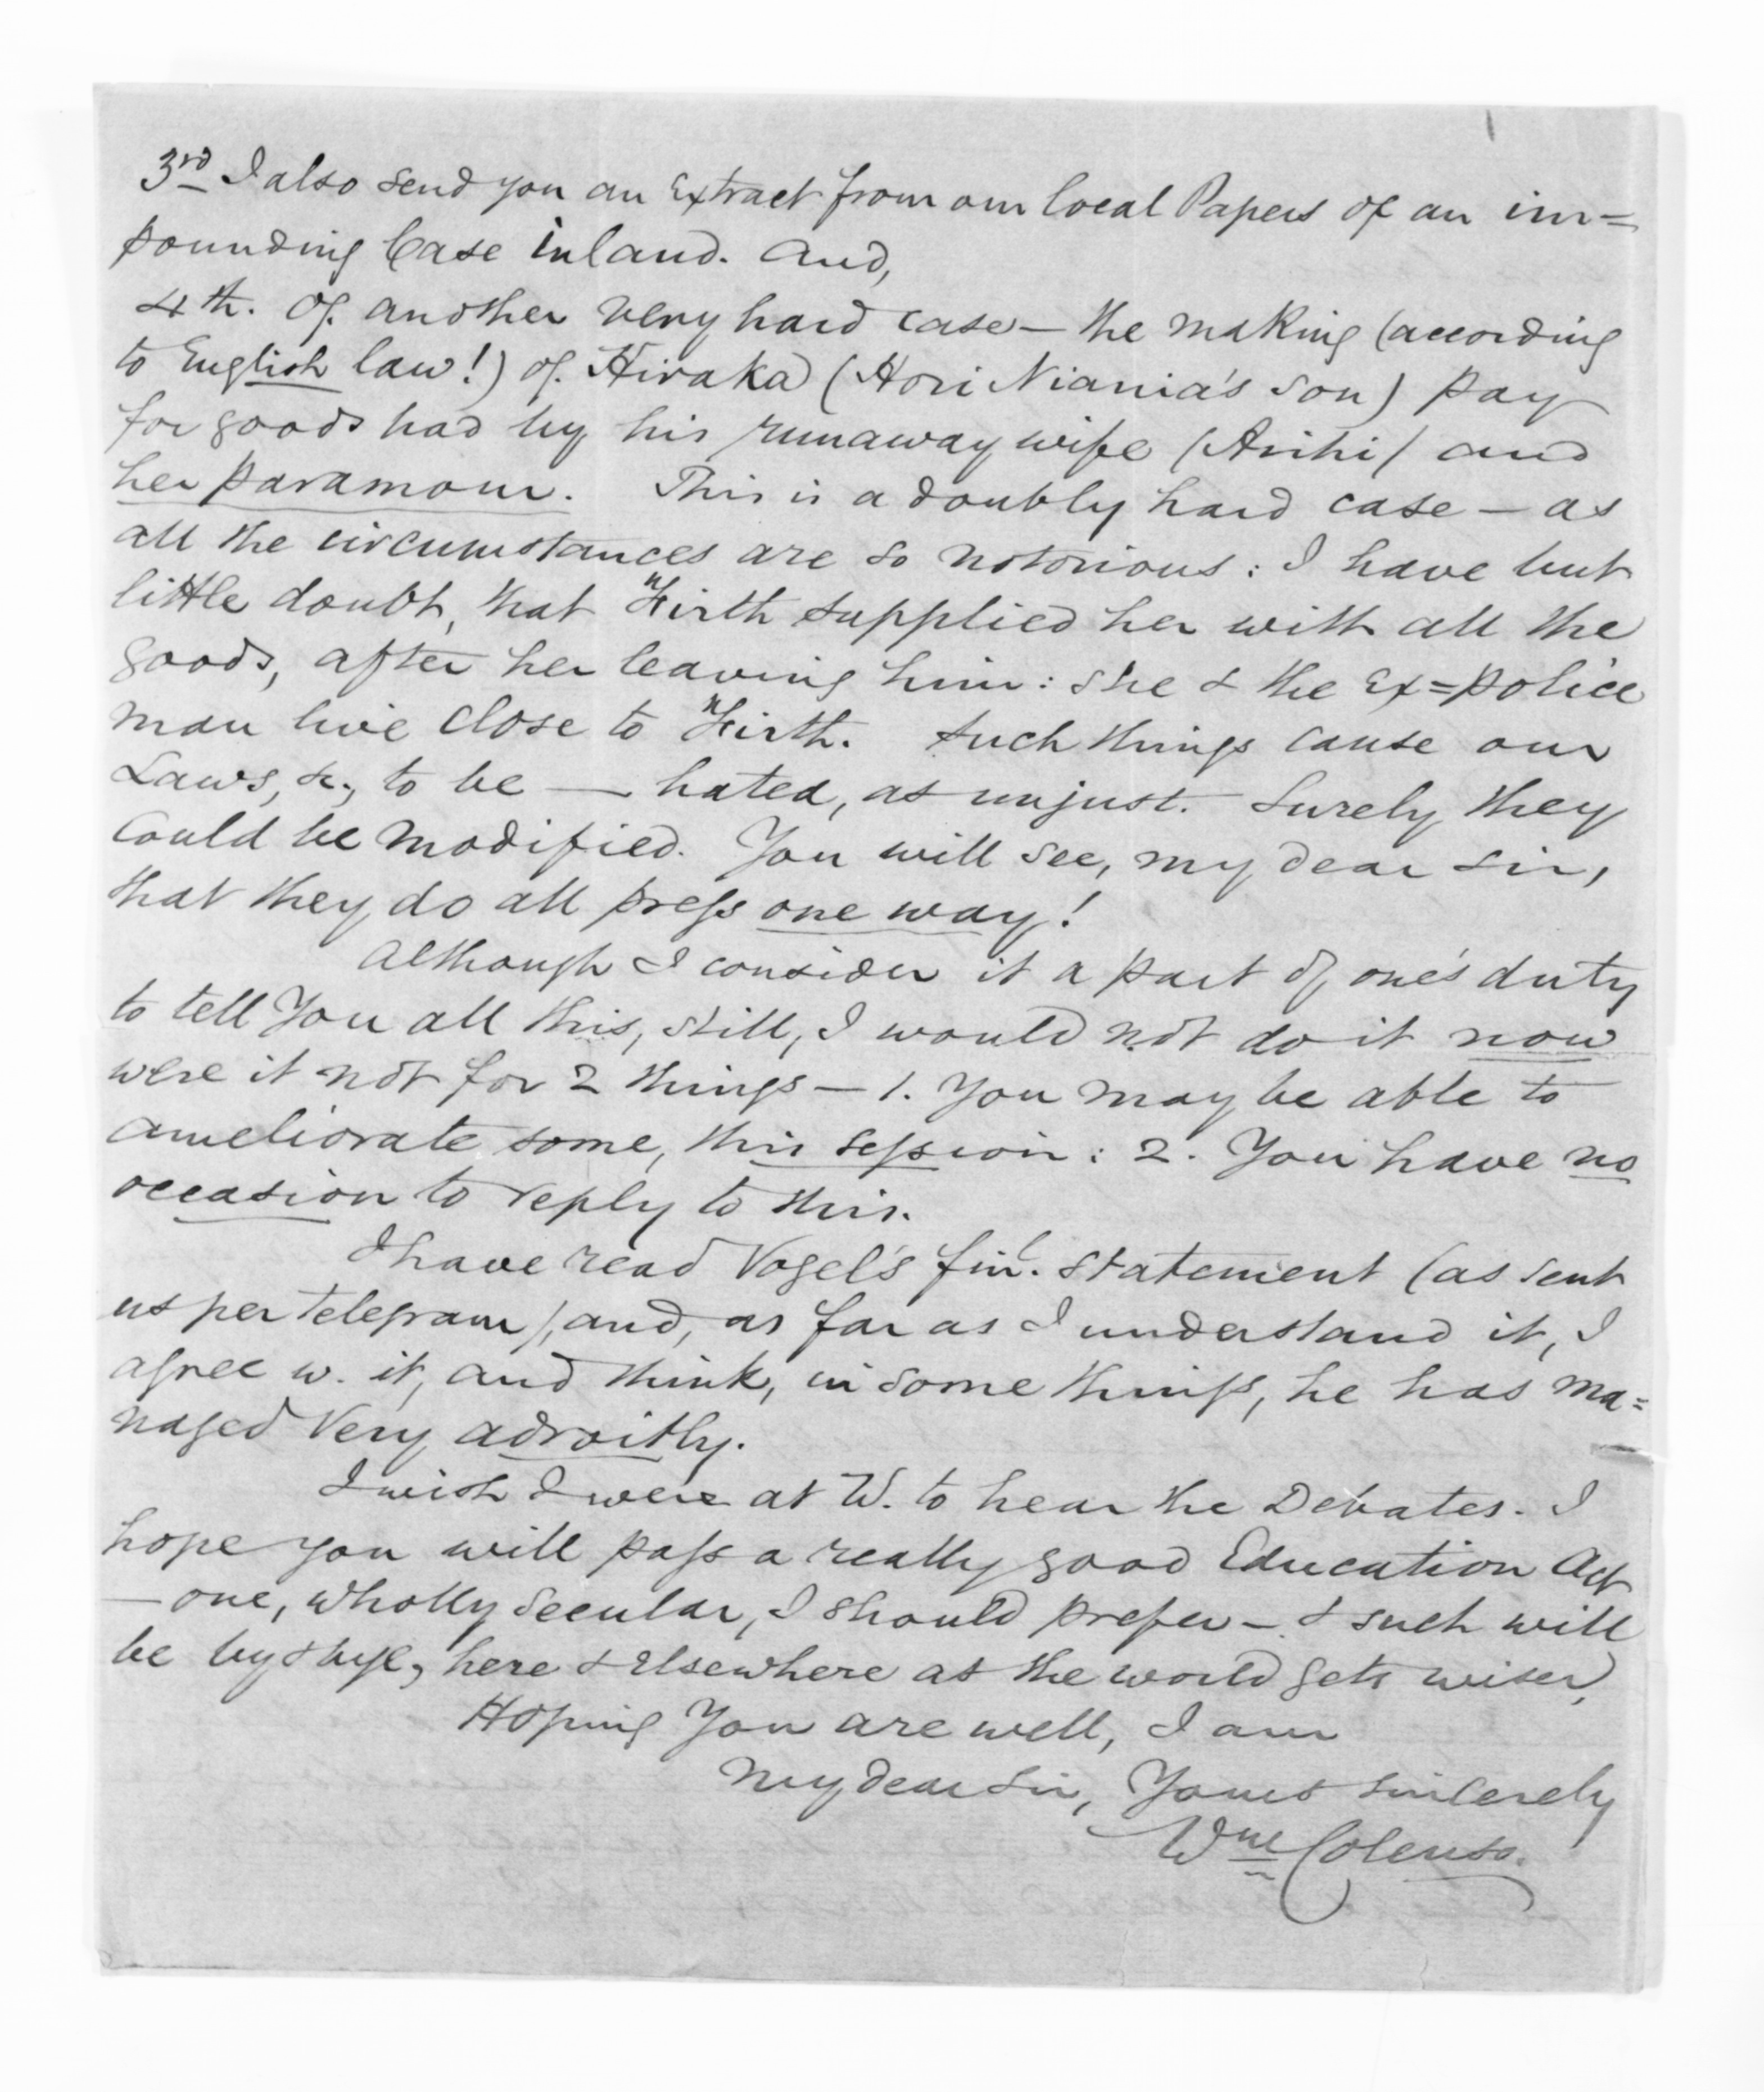 3rd I also send you an Extract from our local Papers of an im=
pounding Case inland. And,
4th. Of another very hard case — the making (according
to English law!) of Hiraka (Hori Niania's son) pay
for goods had by his runaway wife (Arihi) and
her paramour. This is a doubly hard case — as
all the circumstances are so notorious: I have but
little doubt, that Firth supplied her with all the
goods, after her leaving him: she & the Ex=police
man live close to Firth. Such things cause our
Laws, &c., to be — hated, as unjust. Surely they
could be modified. You will see, my dear Sir,
that they do all press one way!
Although I consider it a part of one's duty
to tell You all this, still, I would not do it now
were it not for 2 things — 1. You may be able to
ameliorate some, this session: 2. You have no
occasion to reply to this.
I have read Vogel's finl. statement (as sent
us per telegram), and, as far as I understand it, I
agree w. it, and think, in some things, he has ma=
naged very adroitly.
I wish I were at W. to hear the Debates. I
hope you will pass a really good Education Act
— one, wholly secular, I should prefer — & such will
be by & bye, here & elsewhere as the world gets wiser,
Hoping You are well, I am
My dear Sir, Yours sincerely
Wm Colenso.